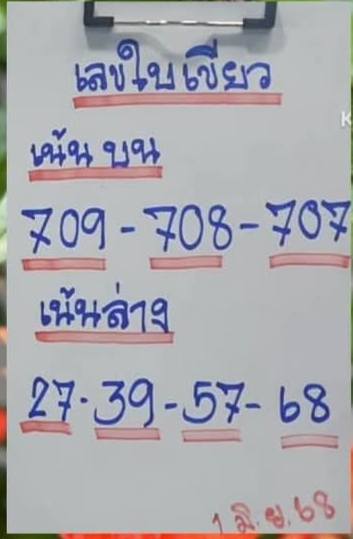 เลขใบเขียว
เน้น บน
709 - 708 - 707
เน้นล่าง
27 - 39 - 57 - 68
1 มิ.ย. 68
K